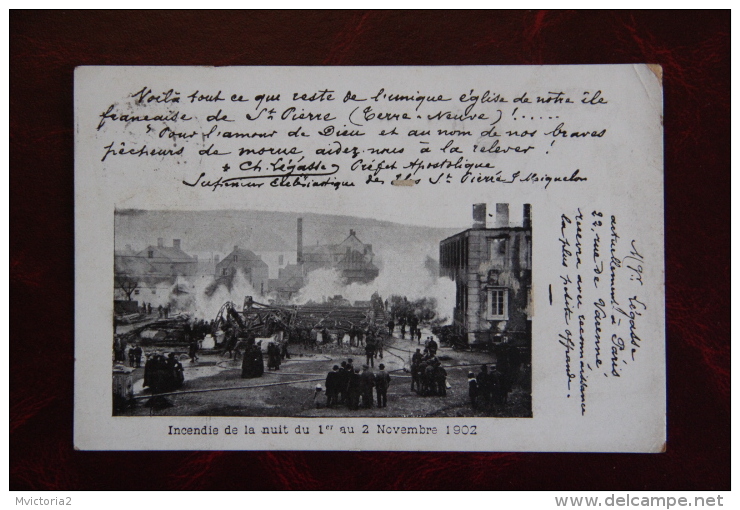 Voilà tout ce que reste de l'unique église de notre île
française de St Pierre (Terre-Neuve)!......
"Pour l'amour de Dieu et au nom de nos braves
pêcheurs de morue aidez-nous à la relever!
+ Ch. Légasse Préfet Apostolique
Supérieur Ecclésiastique des Iles St Pierre & Miquelon
Mgr. Légasse
actuellement à Paris
22, rue de Varenne,
recevra avec reconnaissance
la plus petite offrande.
Incendie de la nuit du 1er au 2 Novembre 1902
Mvictoria2
http://www.delcampe.net